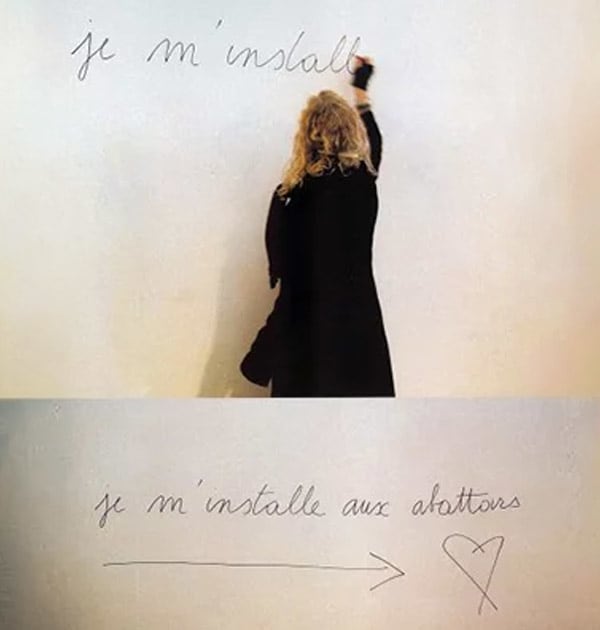 je m'install
je m'installe aux abattoirs